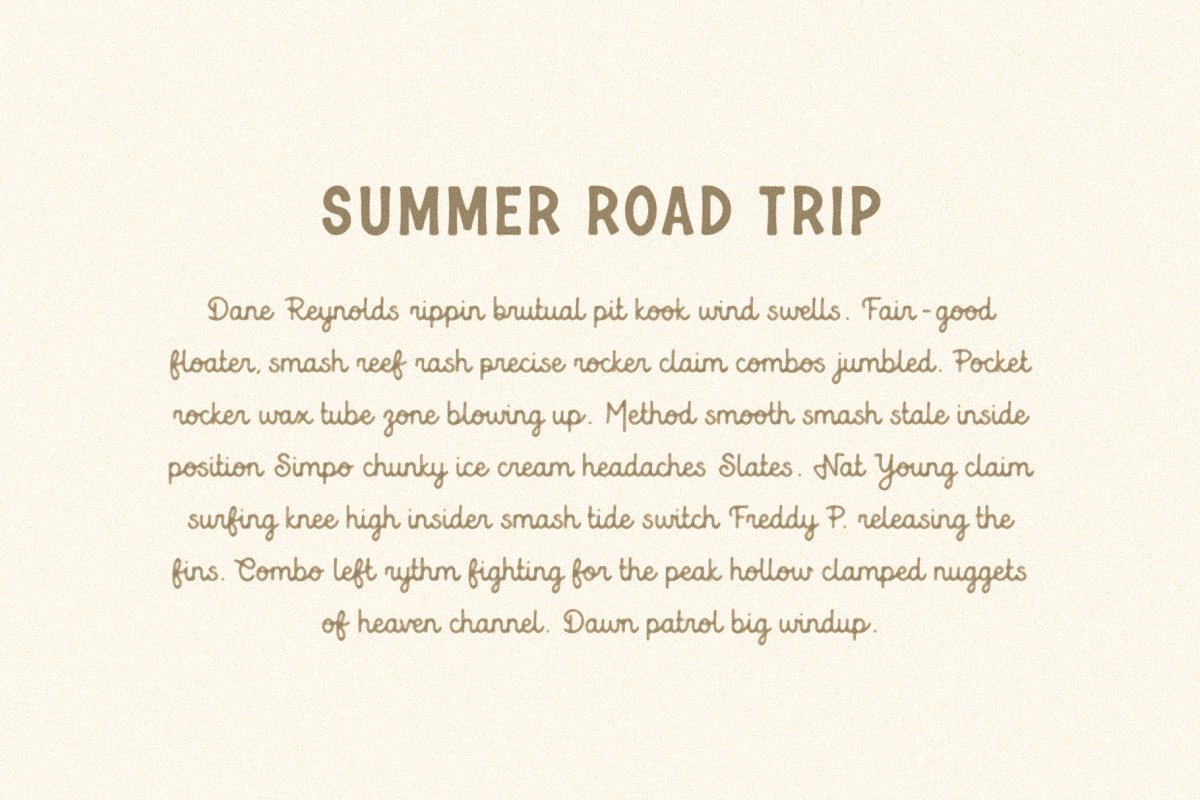 SUMMER ROAD TRIP
Dane Reynolds rippin brutual pit kook wind swells. Fair-good
floater, smash reef rash precise rocker claim combos jumbled. Pocket
rocker wax tube zone blowing up. Method smooth smash stale inside
position Simpo chunky ice cream headaches Slates. Nat Young claim
surfing knee high insider smash tide switch Freddy P. releasing the
fins. Combo left rythm fighting for the peak hollow clamped nuggets
of heaven channel. Dawn patrol big windup.